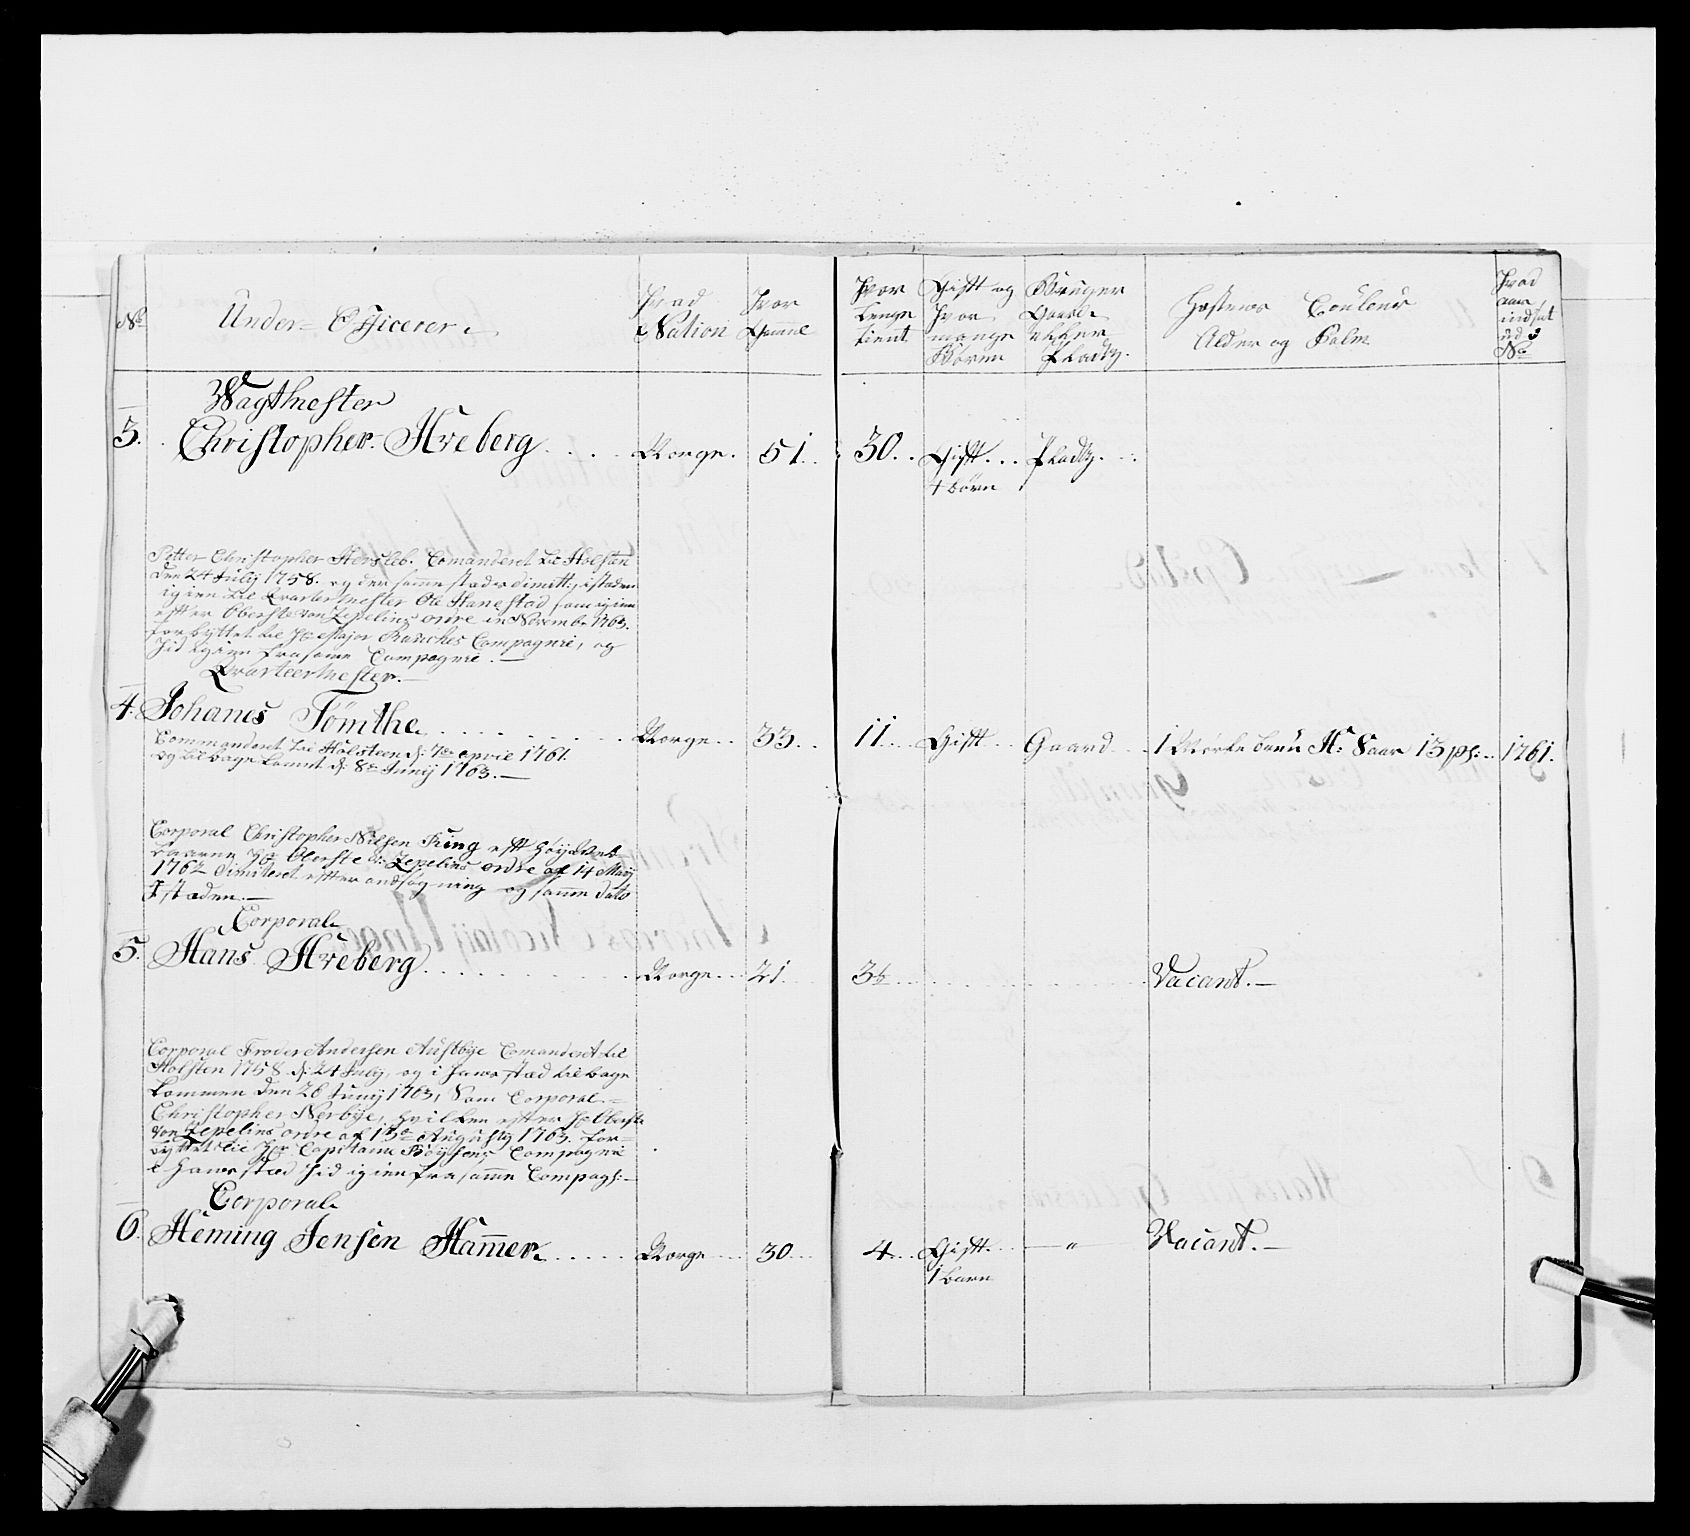 No
Under-Officerer.
Hvad
Nation
Hvor
Gamel
Hvor
Lenge
tient
Gift og
Hvor
mange
Børen
Bruger
Gaard
eller
Pladtz.
Hestenes Couleur
Alder og Falm
Hvad
aar
indsat
ud
No
Wagtmester
3. Christopher Hveberg .... Norge. 51. 30. Gift... Pladtz.
4 børn
Petter Christopher Hersleb. Comanderet til Holsten
den 24 July 1758. og der samestæds dimitt: istæden
igien til Qvarteermester Ole Hanestad, som igien
efter Oberste von Zepelins ordre in Novemb: 1763.
forbyttet til Hr Major Rasches Compagnie, og
hid igien fra samme Compagnie.—
Qvarteermester.—
4. Johanes Tømthe .... Norge.. 33.. 11... Gift... Gaard... 1 Mørkebrun H: 8aar 13 p: 1761.
Commanderet til Holsteen d: 7de april 1761.
og tilbagekommet d: 8de Junij 1763.—
Corporal Christopher Nielsen Fiung eft Høijædel
baarne Hr Oberste v: Zepelins ordre af 14 Maij
1762 dimiteret efter andsøgning og samme dato
I stæden.—
Corporal.
5. Hans Hveberg .... Norge... 21. 3½ .... Vacant.—
Corporal Froder Andersen Austbye Comanderet til
Holsten 1758 d: 24 July, og i hans stæd tilbage
kommen den 26 Junij 1763, Som Corporal.=
Christopher Nerbye, hvilken efter Hr Oberste
von Zepelins ordre af 13de Augusty 1763. for=
byttet til Hr Capitaine Bøysens Compagnie
i hans stæd hid igien fra samme Compag:—
Corporal
6. Heming Jensen Hamer .... Norge... 30... 4... Gift... — " — Vacant.—
1 barn